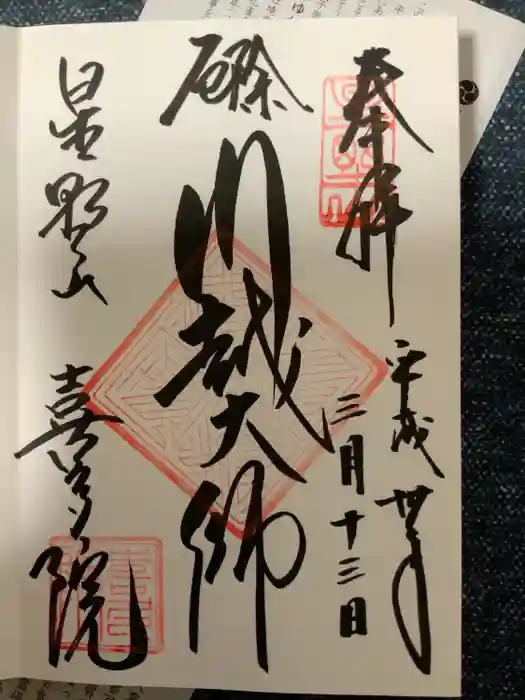 奉拝
平成丗年
三月十三日
厄除
川越大師
星野山
喜多院